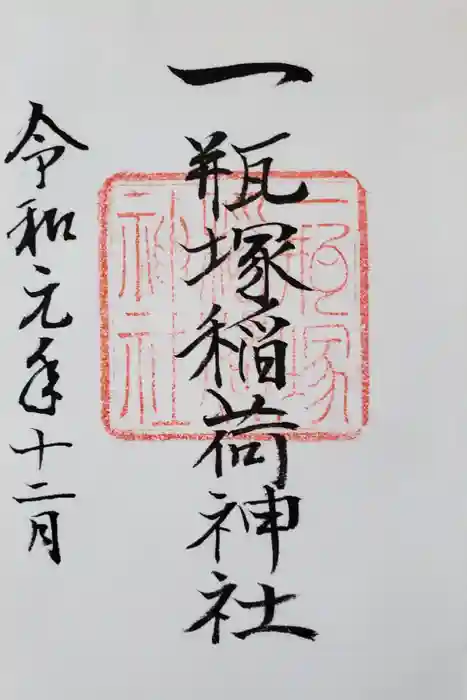 一瓶塚稲荷神社
令和元年十二月
一瓶塚
稲荷
神社